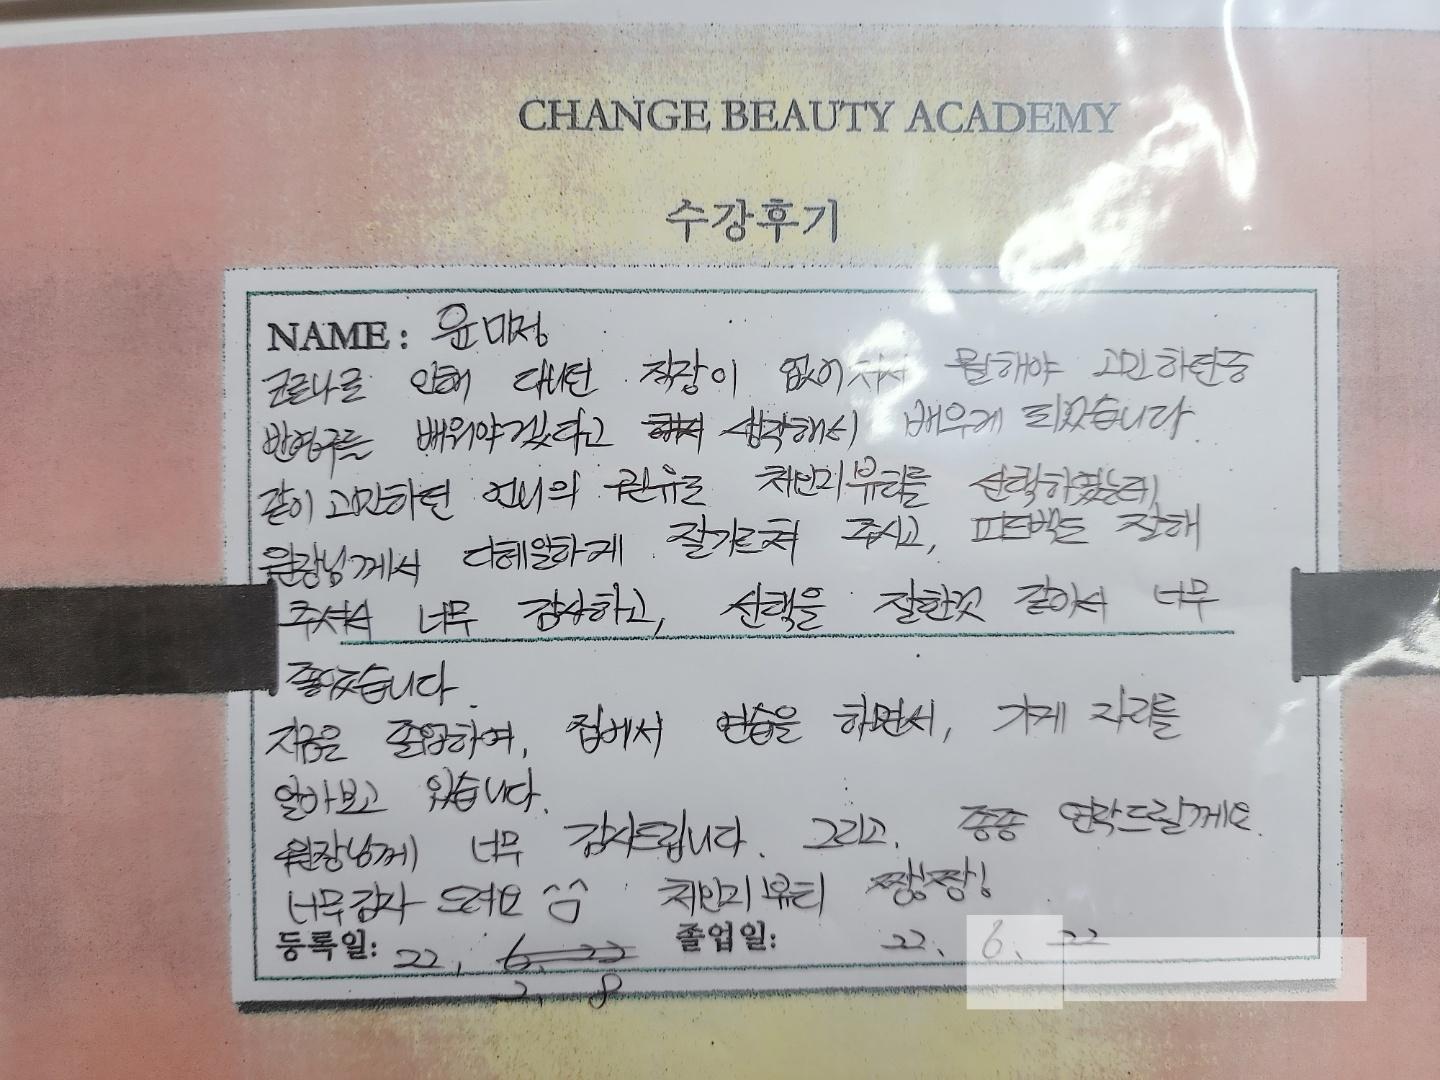 CHANGE BEAUTY ACADEMY
수강후기
NAME : 윤미정
코로나로 인해 다니던 직장이 없어져서 뭘해야 고민하던중
반영구를 배워야겠다고 생각해서 배우게 되었습니다.
같이 고민하던 언니의 권유로 체인지뷰티를 선택하였는데,
원장님께서 디테일하게 잘가르쳐 주시고, 피드백도 잘해
주셔서 너무 감사하고, 선택을 잘한것 같아서 너무
좋았습니다.
지금은 졸업하여, 집에서 연습을 하면서, 가게 자리를
알아보고 있습니다.
원장님께 너무 감사드립니다. 그리고, 종종 연락드릴께요.
너무감사 드려요 ^^ 체인지뷰티 짱짱!
등록일: 22. 6. 22 졸업일: 22. 6. 22
2. 8